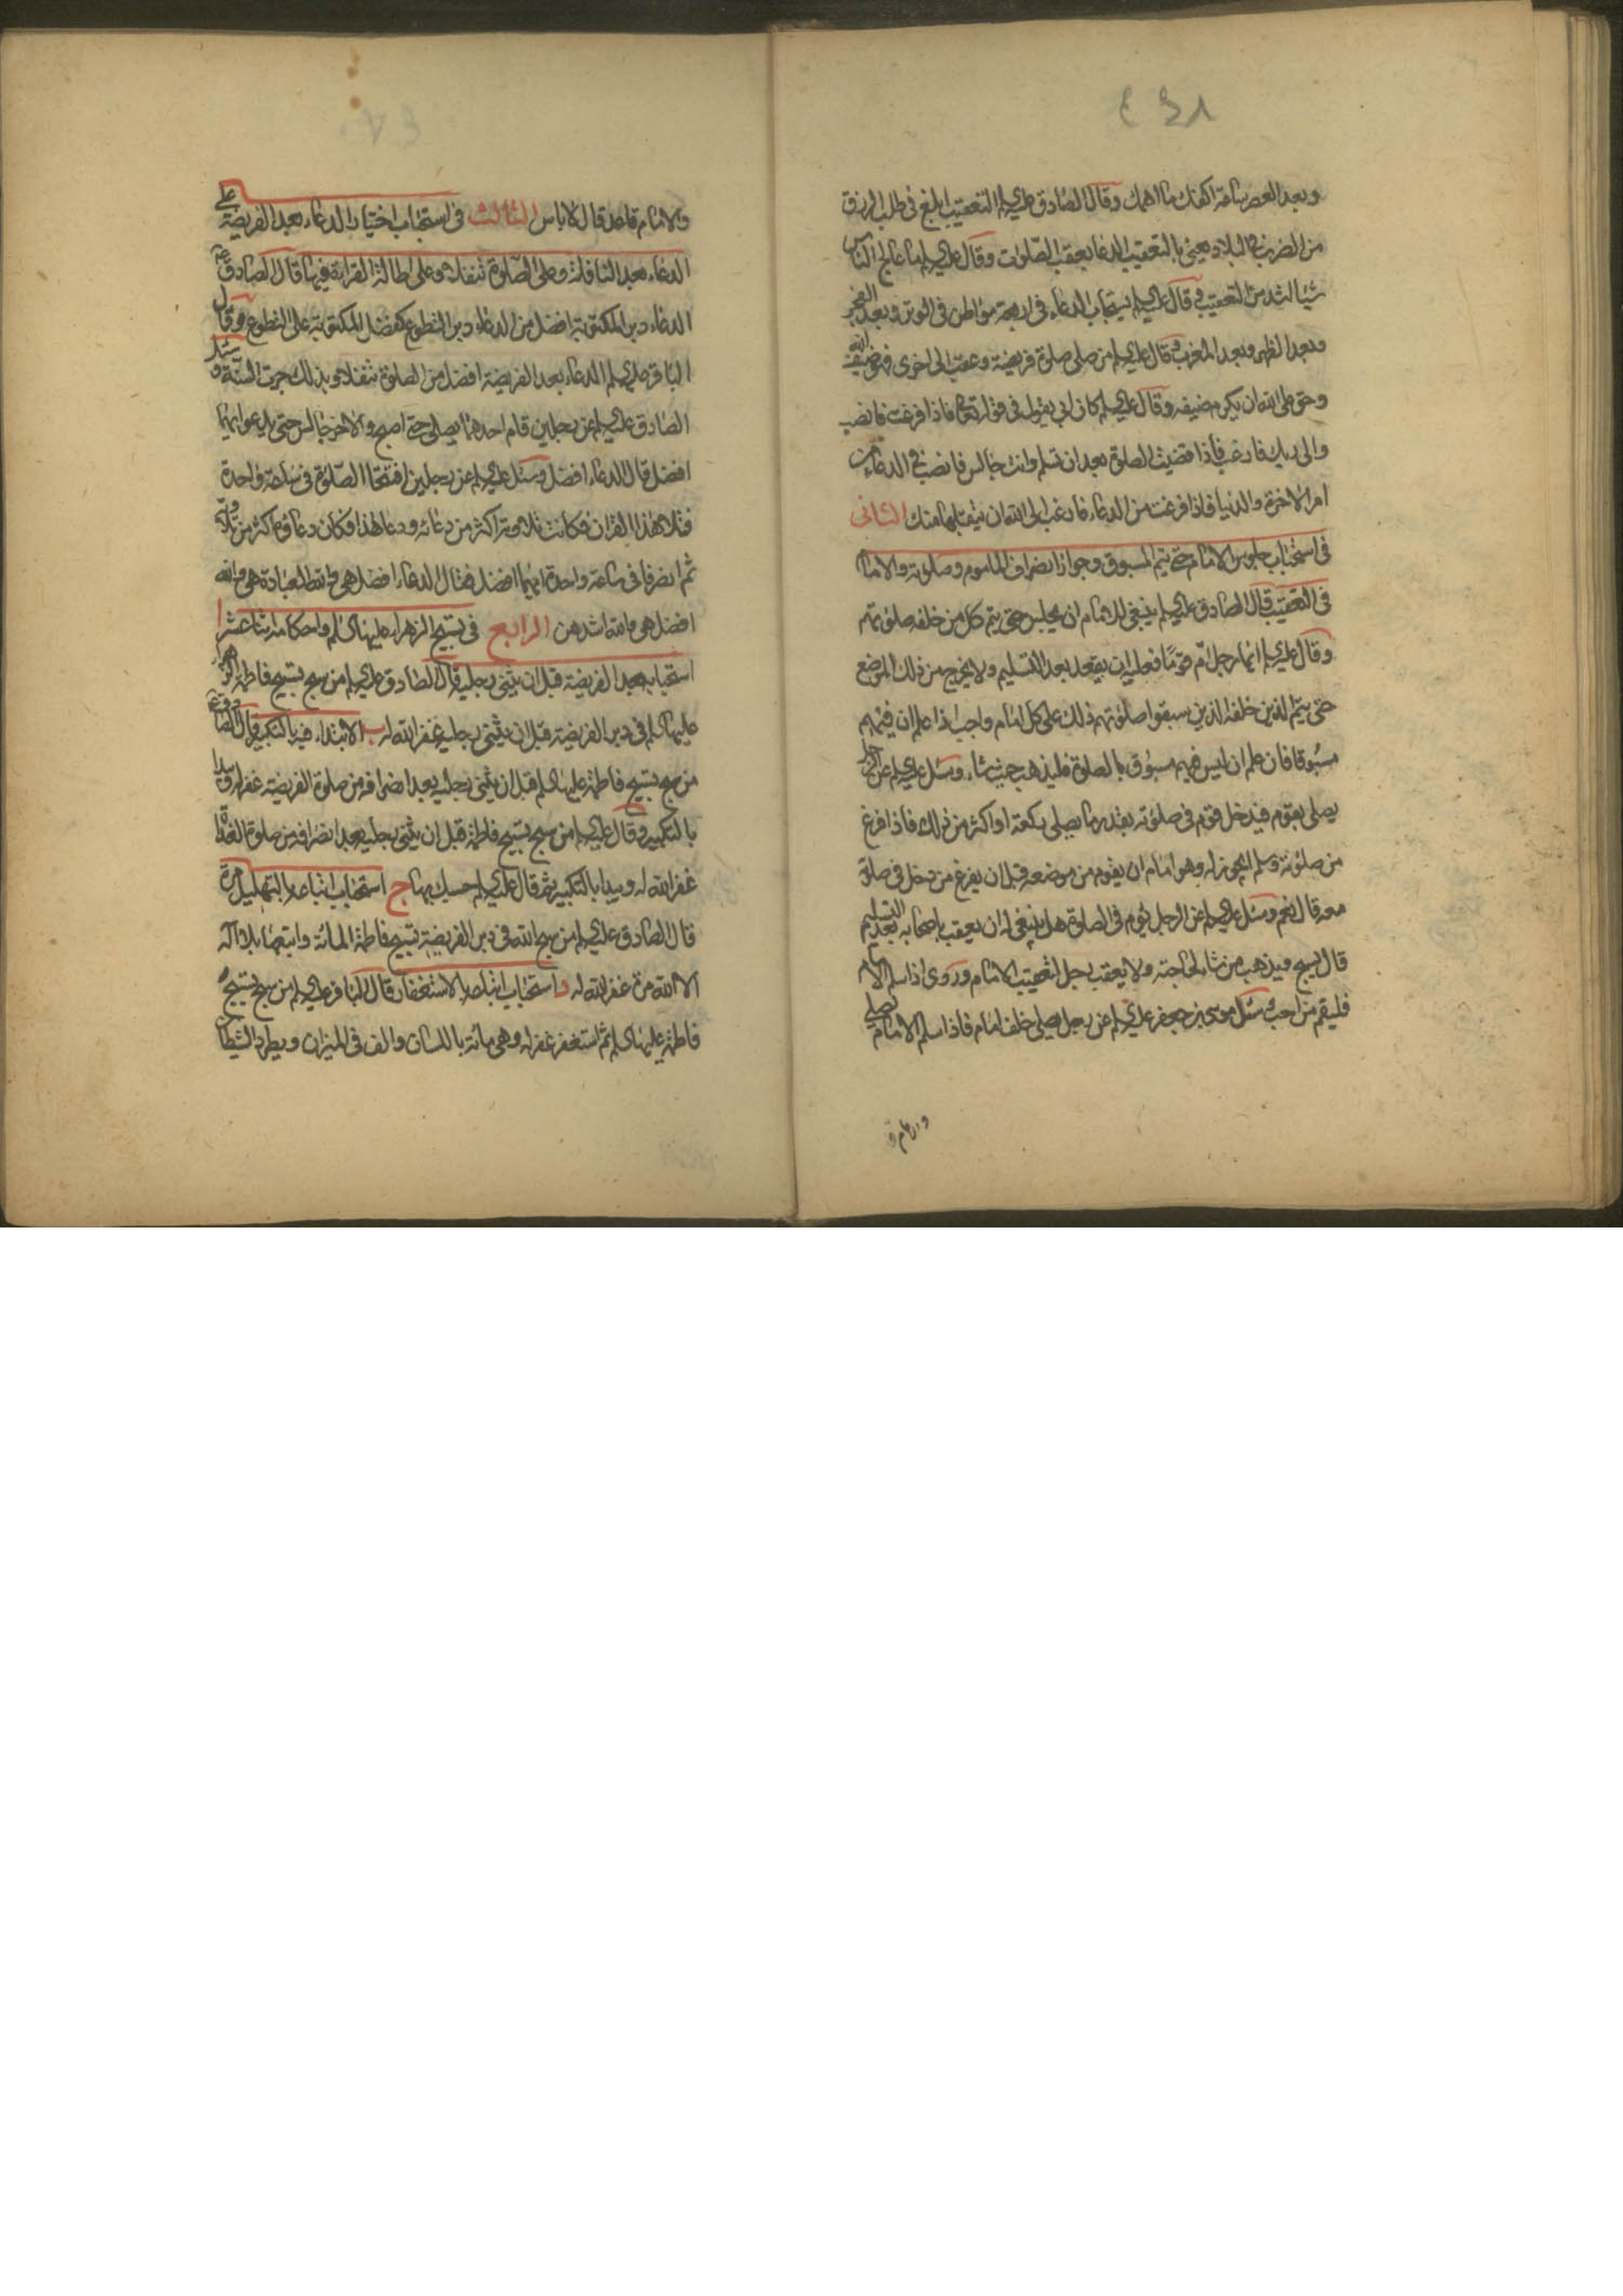 وبعد العصر ساعة اكفك ما اهمك وقال الصادق عليه السلم التعقيب ابلغ في طلب الرزق
من الضرب في البلاد يعني بالتعقيب الدعاء بعقب الصلوات وقال عليه السلم ما عالج الناس
شيئا اشد من التعقيب وقال عليه السلم يستجاب الدعاء في اربعة مواطن في الوتر وبعد الفجر
وبعد الظهر وبعد المغرب وقال عليه السلم من صلى صلوة فريضة وعقب الى اخرى فهو ضيف الله
وحق على الله ان يكرم ضيفه وقال عليه السلم كان ابي يقول في قوله تعالى فاذا فرغت فانصب
والى ربك فارغب فاذا قضيت الصلوة بعد ان تسلم وانت جالس فانصب في الدعاء من
امر الاخرة والدنيا فاذا فرغت من الدعاء فارغب الى الله ان يتقبلها منك الثاني
في استحباب جلوس الامام حتى يتم المسبوق وجواز انصراف الماموم وصلوته والامام
في التعقيب قال الصادق عليه السلم ينبغي للامام ان يجلس حتى يتم كل من خلفه صلوتهم
وقال عليه السلم ايما رجل ام قوما فعليه ان يقعد بعد التسليم ولا يخرج من ذلك الموضع
حتى يتم الذين خلفه الذين سبقوا صلوتهم ذلك على كل امام واجب اذا علم ان فيهم
مسبوقا فان علم ان ليس فيهم مسبوق بالصلوة فليذهب حيث شاء وسئل عليه السلم عن الرجل
يصلي بقوم فيدخل قوم في صلوته بقدر ما يصلي ركعة او اكثر من ذلك فاذا فرغ
من صلوته وسلم ايجوز له وهو امام ان يقوم من موضعه قبل ان يفرغ من دخل في صلوة
معه قال نعم وسئل عليه السلم عن الرجل يؤم في الصلوة هل ينبغي له ان يعقب باصحابه بعد التسليم
قال يسبح ويذهب من شاء لحاجته ولا يعقب رجل لتعقيب الامام وروى اذا سلم الامام
فليقم من احب وسئل موسى بن جعفر عليه السلم عن رجل يصلي خلف امام فاذا سلم الامام يصلي
والامام
والامام قاعد قال لا باس الثالث في استحباب اختيار الدعاء بعد الفريضة على
الدعاء بعد النافلة وعلى الصلوة تنفلا وعلى اطالة القراءة فيها قال الصادق ع
الدعاء دبر المكتوبة افضل من الدعاء دبر التطوع كفضل المكتوبة على التطوع وقال
الباقر عليه السلم الدعاء بعد الفريضة افضل من الصلوة تنفلا وبذلك جرت السنة وسئل
الصادق عليه السلم عن رجلين قام احدهما يصلي حتى اصبح والاخر جالس حتى يدعو ايهما
افضل قال الدعاء افضل وسئل عليه السلم عن رجلين افتتحا الصلوة في ساعة واحدة
فتلا هذا القران فكانت تلاوته اكثر من دعائه ودعا هذا فكان دعاؤه اكثر من تلاوته
ثم انصرفا في ساعة واحدة ايهما افضل فقال الدعاء افضل هي والله العبادة هي والله
افضل هي والله اشدهن الرابع في تسبيح الزهراء عليها السلم واحكامه اثنا عشر ا
استحبابه بعد الفريضة قبل ان يثني رجليه قال الصادق عليه السلم من سبح تسبيح فاطمة الزهراء
عليها السلم في دبر الفريضة قبل ان يثني رجليه غفر الله له ب الابتداء فيه بالتكبير قال الصادق ع
من سبح تسبيح فاطمة عليها السلم قبل ان يثني رجليه بعد انصرافه من صلوة الفريضة غفر له ويبدا
بالتكبير وقال عليه السلم من سبح تسبيح فاطمة قبل ان يثني رجليه بعد انصرافه من صلوة الغداة
غفر الله له ويبدا بالتكبير ثم قال عليه السلم حسبك بها ج استحباب اتباعه بالتهليل مرة
قال الصادق عليه السلم من سبح الله في دبر الفريضة تسبيح فاطمة المائة واتبعها بلا اله
الا الله مرة غفر الله له د استحباب اتباعه بالاستغفار قال الباقر عليه السلم من سبح تسبيح
فاطمة عليها السلم ثم استغفر غفر له وهي مائة باللسان والف في الميزان ويطرد الشيطان